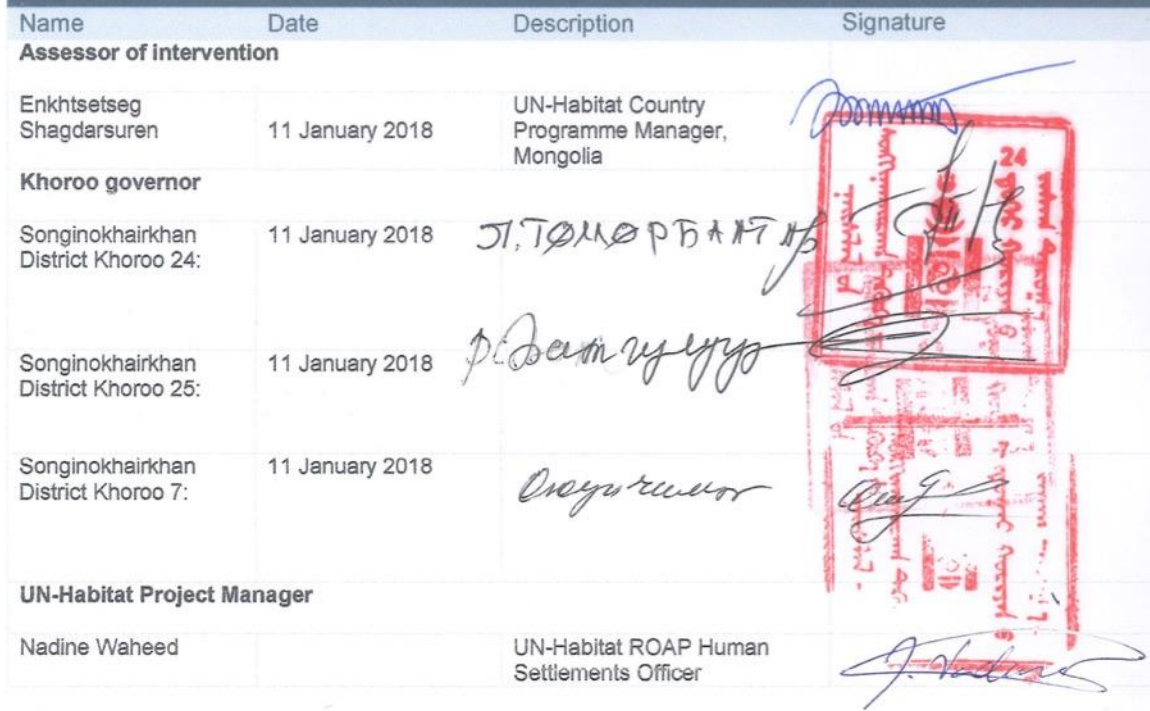 Name Date Description Signature
Assessor of intervention
Enkhtsetseg
Shagdarsuren
11 January 2018
UN-Habitat Country
Programme Manager,
Mongolia
Khoroo governor
Songinokhairkhan
District Khoroo 24:
11 January 2018
П.ТӨМӨРБААТАР
24
Songinokhairkhan
District Khoroo 25:
11 January 2018
Songinokhairkhan
District Khoroo 7:
11 January 2018
Оюунчимэг
7
UN-Habitat Project Manager
Nadine Waheed
UN-Habitat ROAP Human
Settlements Officer